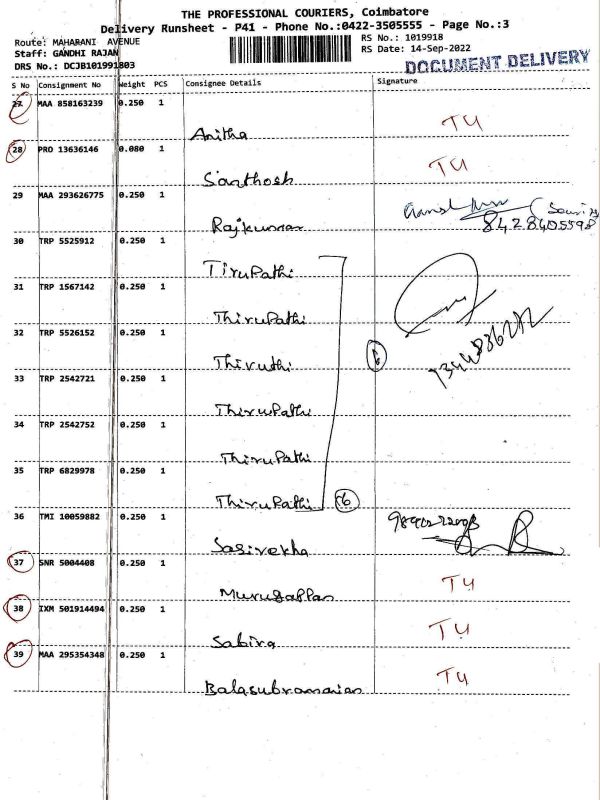 THE PROFESSIONAL COURIERS, Coimbatore
Delivery Runsheet - P41 - Phone No.:0422-3505555 - Page No.:3
Route: MAHARANI AVENUE
RS No.: 1019918
Staff: GANDHI RAJAN
RS Date: 14-Sep-2022
DRS No.: DCJB101991803
DOCUMENT DELIVERY
S No Consignment No Weight PCS Consignee Details Signature
27 MAA 858163239 0.250 1
Anitha T4
28 PRO 13636146 0.080 1
Santhosh T4
29 MAA 293626775 0.250 1
Rajkumar 8428405598
30 TRP 5525912 0.250 1
TiruPathi
31 TRP 1567142 0.250 1
ThiruPathi
32 TRP 5526152 0.250 1
Thiruthi 6
33 TRP 2542721 0.250 1
ThiruPathi
34 TRP 2542752 0.250 1
ThiruPathi
35 TRP 6829978 0.250 1
ThiruPathi 6
36 TMI 10059882 0.250 1
Sasirekha
37 SNR 5004408 0.250 1
Murugappan T4
38 IXM 501914494 0.250 1
Sabira T4
39 MAA 295354348 0.250 1
Balasubramanian T4